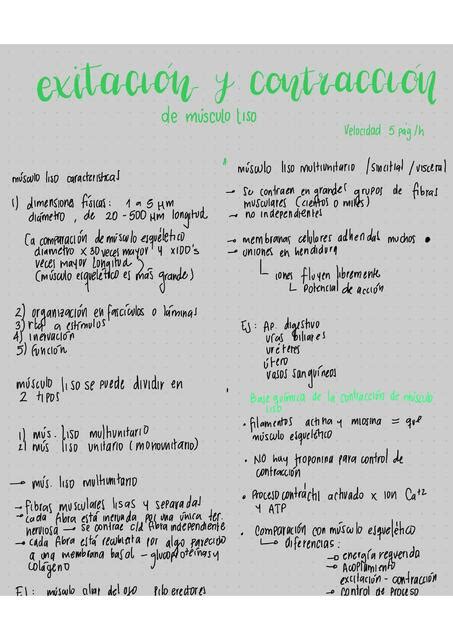 exitación y contracción
de músculo liso
Velocidad 5 pág/h
músculo liso características
1) dimensiones físicas: 1 a 5 μm
diámetro, de 20-500 μm longitud
(a comparación de músculo esquelético
diámetro x 30 veces mayor y x100's
veces mayor longitud)
(músculo esquelético es más grande)
2) organización en fascículos o láminas
3) rta a estímulos
4) inervación
5) función
músculo liso se puede dividir en
2 tipos
1) mús. liso multiunitario
2) mús liso unitario (monounitario)
→ mús. liso multiunitario
→ fibras musculares lisas y separadas
→ cada fibra está inervada por una única ter.
nerviosa → se contrae c/d fibra independiente
→ cada fibra está recubierta por algo parecido
a una membrana basal - glucoproteínas y
colágeno
Ej: músculo ciliar del ojo piloerectores
músculo liso multiunitario /sincitial /visceral
→ se contraen en grandes grupos de fibras
musculares (cientos o miles)
→ no independientes
→ membranas celulares adheridas muchos •
→ uniones en hendidura
↳ iones fluyen libremente
↳ potencial de acción
Ej: Ap. digestivo
vías biliares
uréteres
útero
vasos sanguíneos
Base química de la contracción de músculo
liso
• Filamentos actina y miosina = que
músculo esquelético
• NO hay troponina para control de
contracción
• Proceso contráctil activado x ion Ca+2
y ATP
• Comparación con músculo esquelético
↳ diferencias:
→ energía requerida
→ Acoplamiento
excitación - contracción
→ control de proceso